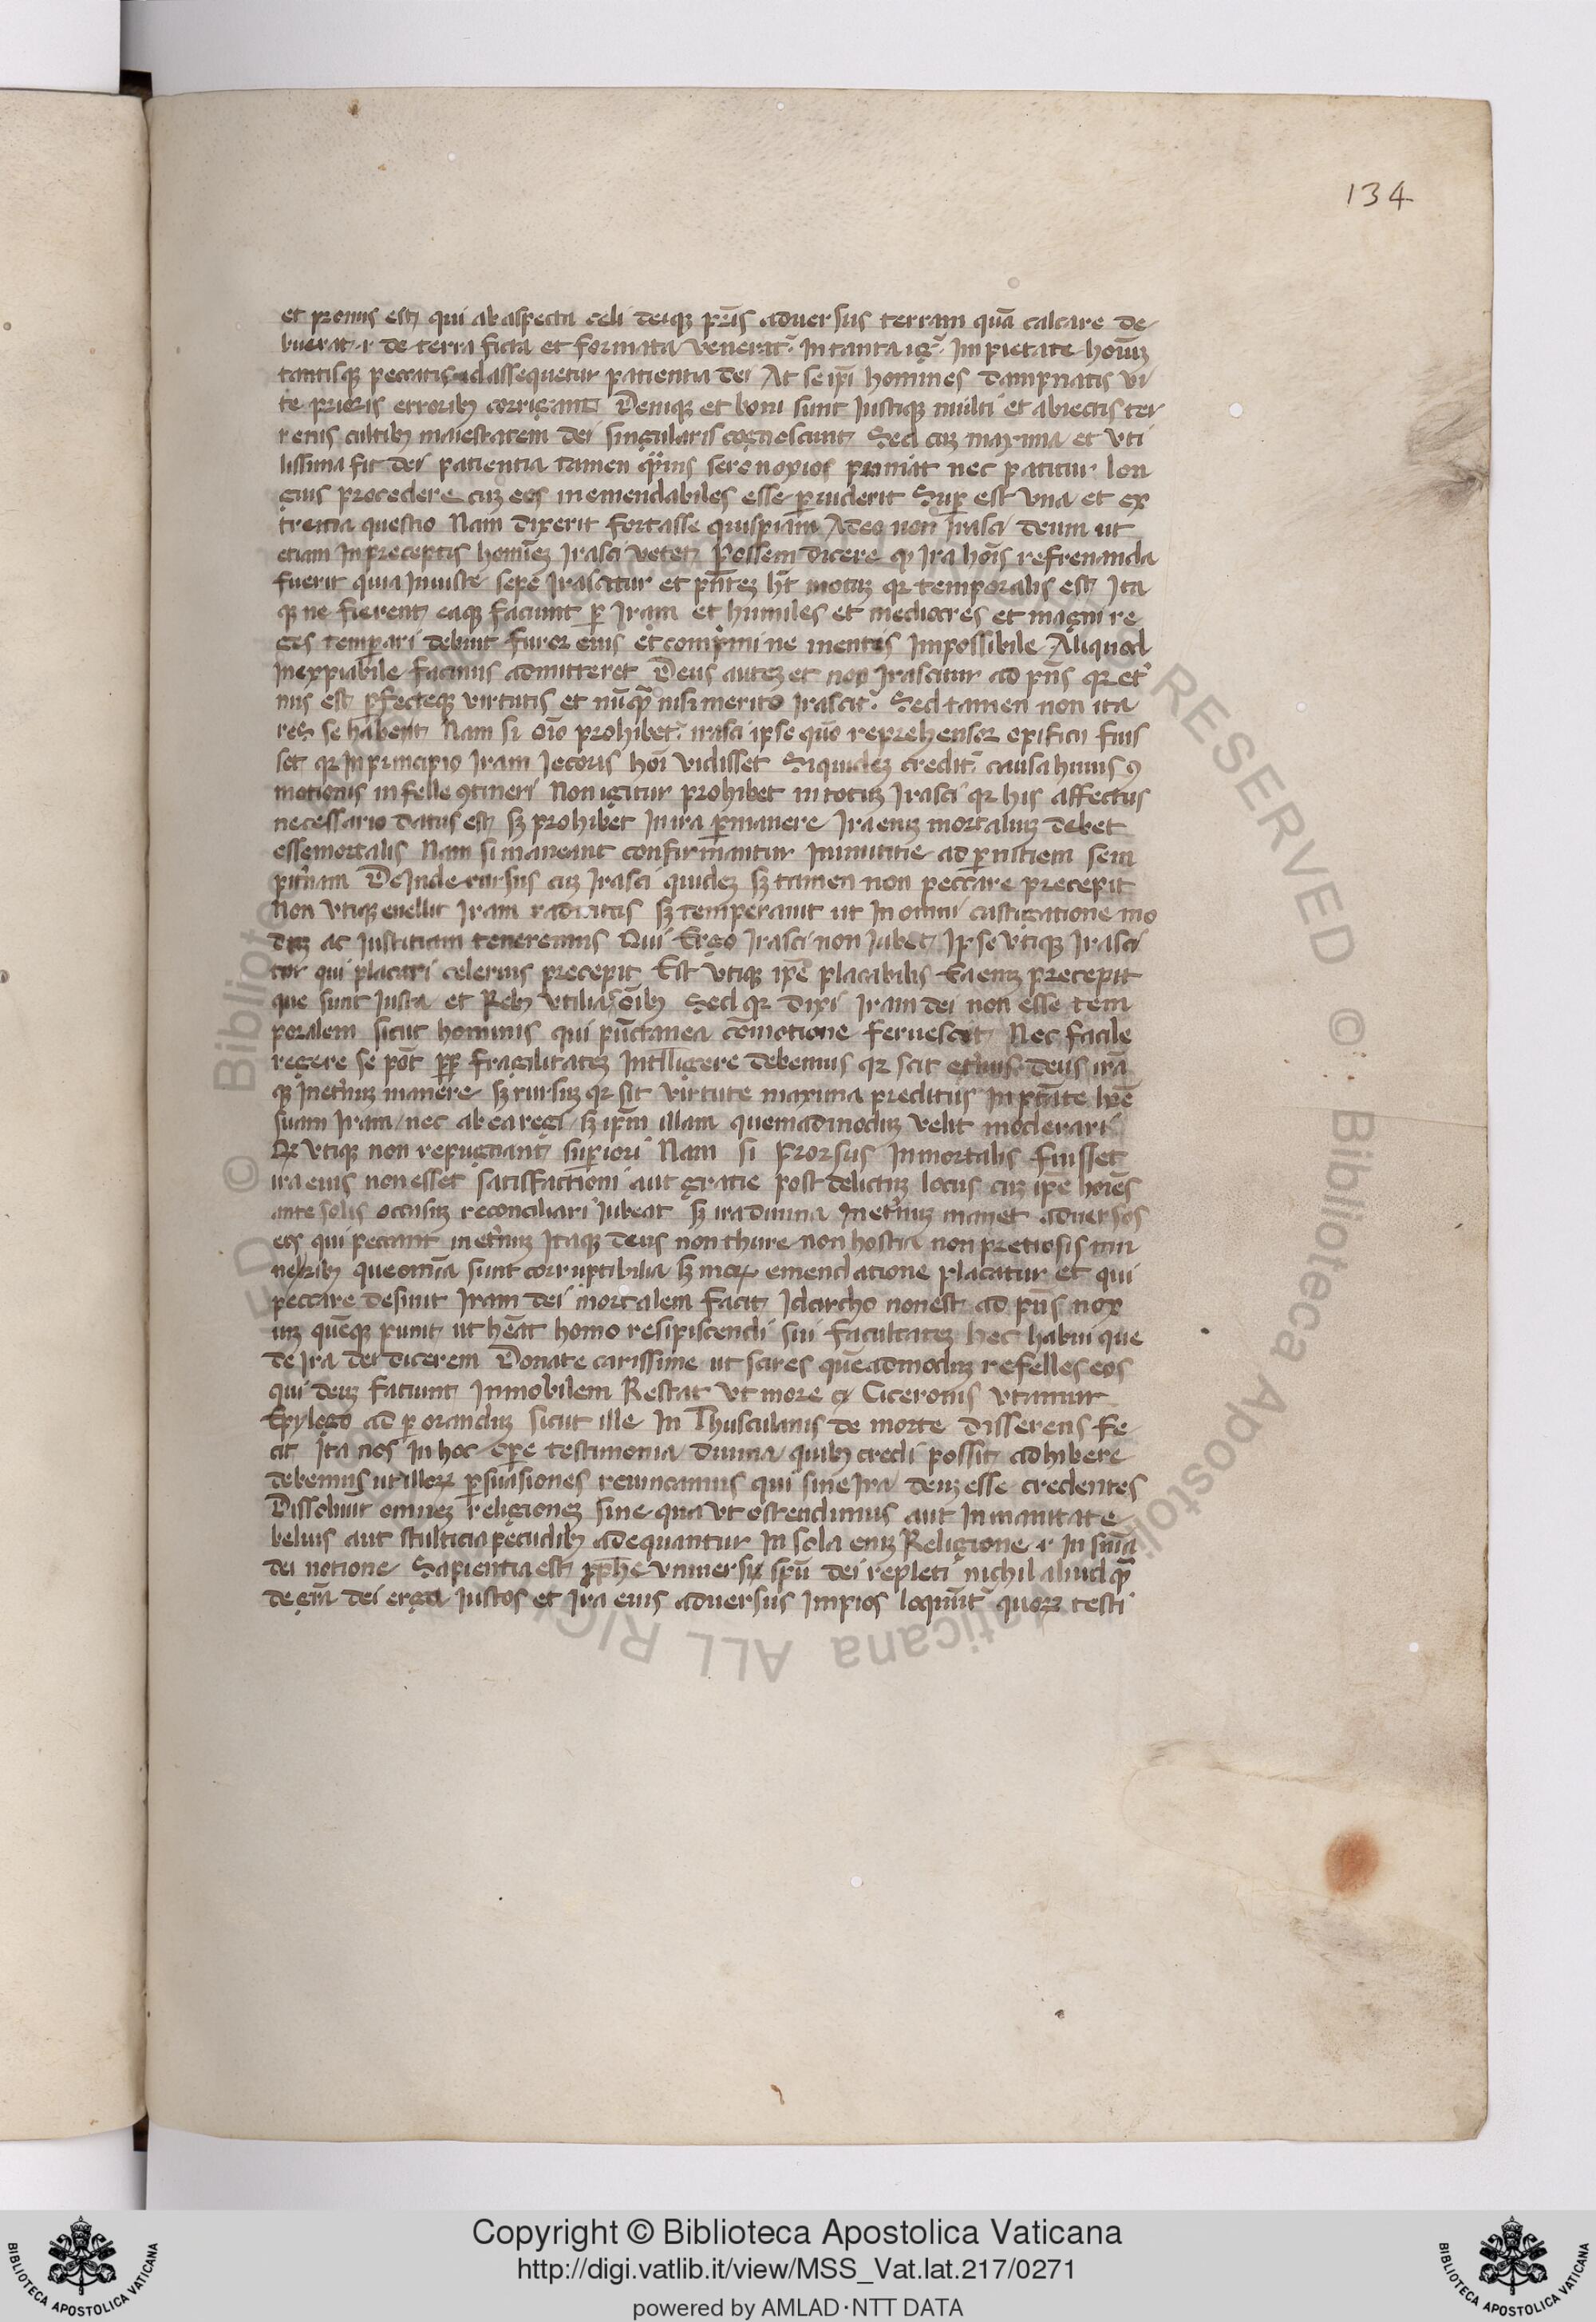 134
et pronus est qui ab aspectu celi deiq̨ pr̄is aduersus terram quā calcare de
buerat ⁊ de terra ficta et formata venerat᷑. In tanta ig᷑. Impietate hoīuȝ
tantisq̨ peccatis adassequetur patientia dei At se ip̄i homines dampnatis vi
te prioris erroribꝫ corrigant Deniq̨ et boni sunt Iustiq̨ multi et abiectis ter
renis cultibꝫ maiestatem dei singularis cognoscunt Sed cuȝ maxima et vti
lissima sit dei patientia tamen sero noxios puniat nec patitur lon
gius procedere cuȝ eos inemendabiles esse ꝑuiderit Suꝑ est vna et ex
trema questio Nam dixerit fortasse quispiam Adeo non Irasci deum ut
etiam In preceptis hominēȝ Irasci vetet Possem dicere ꝙ Ira hoīs refrenanda
fuerit quia Iniuste sepe Irascitur et pn̄teȝ ht̄ motuȝ qꝛ temporalis est Ita
q̨ ne fierent eaq̨ faciunt ꝑ Iram et humiles et mediocres et magni re
ges temꝑari debuit furor eius et comprimi ne mentis Impossibile Aliquod
Inexpiabile facinus admitteret Deus auteȝ et non Irascitur ad pn̄s qꝛ et᷑
nus est ꝑfecteq̨ virtutis et nū̄qꝫ nisi merito Irascit᷑. Sed tamen non ita
res se habent Nam si oīo prohibet᷑. irasci ipse quō reprehensor opificii fuis
set qꝛ In principio Iram Iecoris hoī vidisset Siquideȝ credit᷑ causa huius ꝯ
motionis in felle ꝯtineri Non igitur prohibet in totuȝ Irasci qꝛ his affectus
necessario datus est sȝ prohibet In ira ꝑmanere Ira enȝ mortaliuȝ debet
esse mortalis Nam si maneant confirmantur Inimititie ad ꝑnitiem sem
pit᷑nam DeInde rursus cuȝ Irasci quideȝ sȝ tamen non peccare precepit
Non vtiq̨ euellit Iram radicitus sȝ temperauit ut In omni castigatione mo
duȝ ac Iustitiam teneremus Qui Ergo Irasci non Iubet Ipse vtiq̨ Irasci
tur qui placari celerius precepit Est vtiq̨ ip̄e placabilis Ea enȝ precepit
que sunt Iusta et Rebꝫ vtilia oībꝫ Sed qꝛ dixi Iram dei non esse tem
poralem sicut hominis qui p̄uctanea cōmotione feruescit Nec facile
regere se pōt ꝓꝑ fragilitateȝ Intelligere debemus qꝛ scit et᷑nus deus irā
q̨ In et᷑nuȝ manere sȝ rursuȝ qꝛ sit virtute maxima preditus In pt̄āte hr̄e
suam Iram nec ab ea regi sȝ ip̄m illam quemadmoduȝ velit moderari
Qꝛ vtiq̨ non repugnant suꝑiori Nam si Prorsus Inmortalis fuisset
ira eius non esset satisfactioni aut gratie post delictuȝ locus cuȝ ip̄e hoīēs
ante solis occasuȝ reconciliari Iubeat sȝ ira diuina In et᷑nuȝ manet aduersos
eos qui peccant in et᷑nuȝ Itaq̨ deus non thure non hostia non pretiosis mu
neribꝫ que omīa sunt corruptibilia sȝ moꝝ emendatione placatur et qui
peccare desinit Iram dei mortalem facit Idcircho non est ad pn̄s nox
iuȝ quēq̨ punit ut hēāt homo resipiscendi sui facultateȝ hec habui que
de Ira dei dicerem Donate carissime ut scires quēadmoduȝ refelles eos
qui deuȝ faciunt Inmobilem Restat vt more Ciceronis vtamur
Epylogo ad ꝑorandūȝ sicut ille In Thusculanis de morte disserens fe
cit Ita nos In hoc oꝑe testimonia diuina quibꝫ credi possit adhibere
debemus ut illoꝝ ꝑsuasiones reuincamus qui sine Ira deuȝ esse credentes
Dissoluūt omneȝ religioneȝ sine qua vt ostendimus aut Inmanitate
beluis aut stulticia pecudibꝫ adequantur In sola enȝ Religione ⁊ In suma
dei notione Sapientia est ꝓphe vniuersi spū dei repleti nichil aliud qꝫ
de grā dei erga Iustos et Ira eius aduersus Impios loqunt᷑ quoꝝ testi
Copyright © Biblioteca Apostolica Vaticana
http://digi.vatlib.it/view/MSS_Vat.lat.217/0271
powered by AMLAD·NTT DATA
BIBLIOTECA APOSTOLICA VATICANA
BIBLIOTECA APOSTOLICA VATICANA